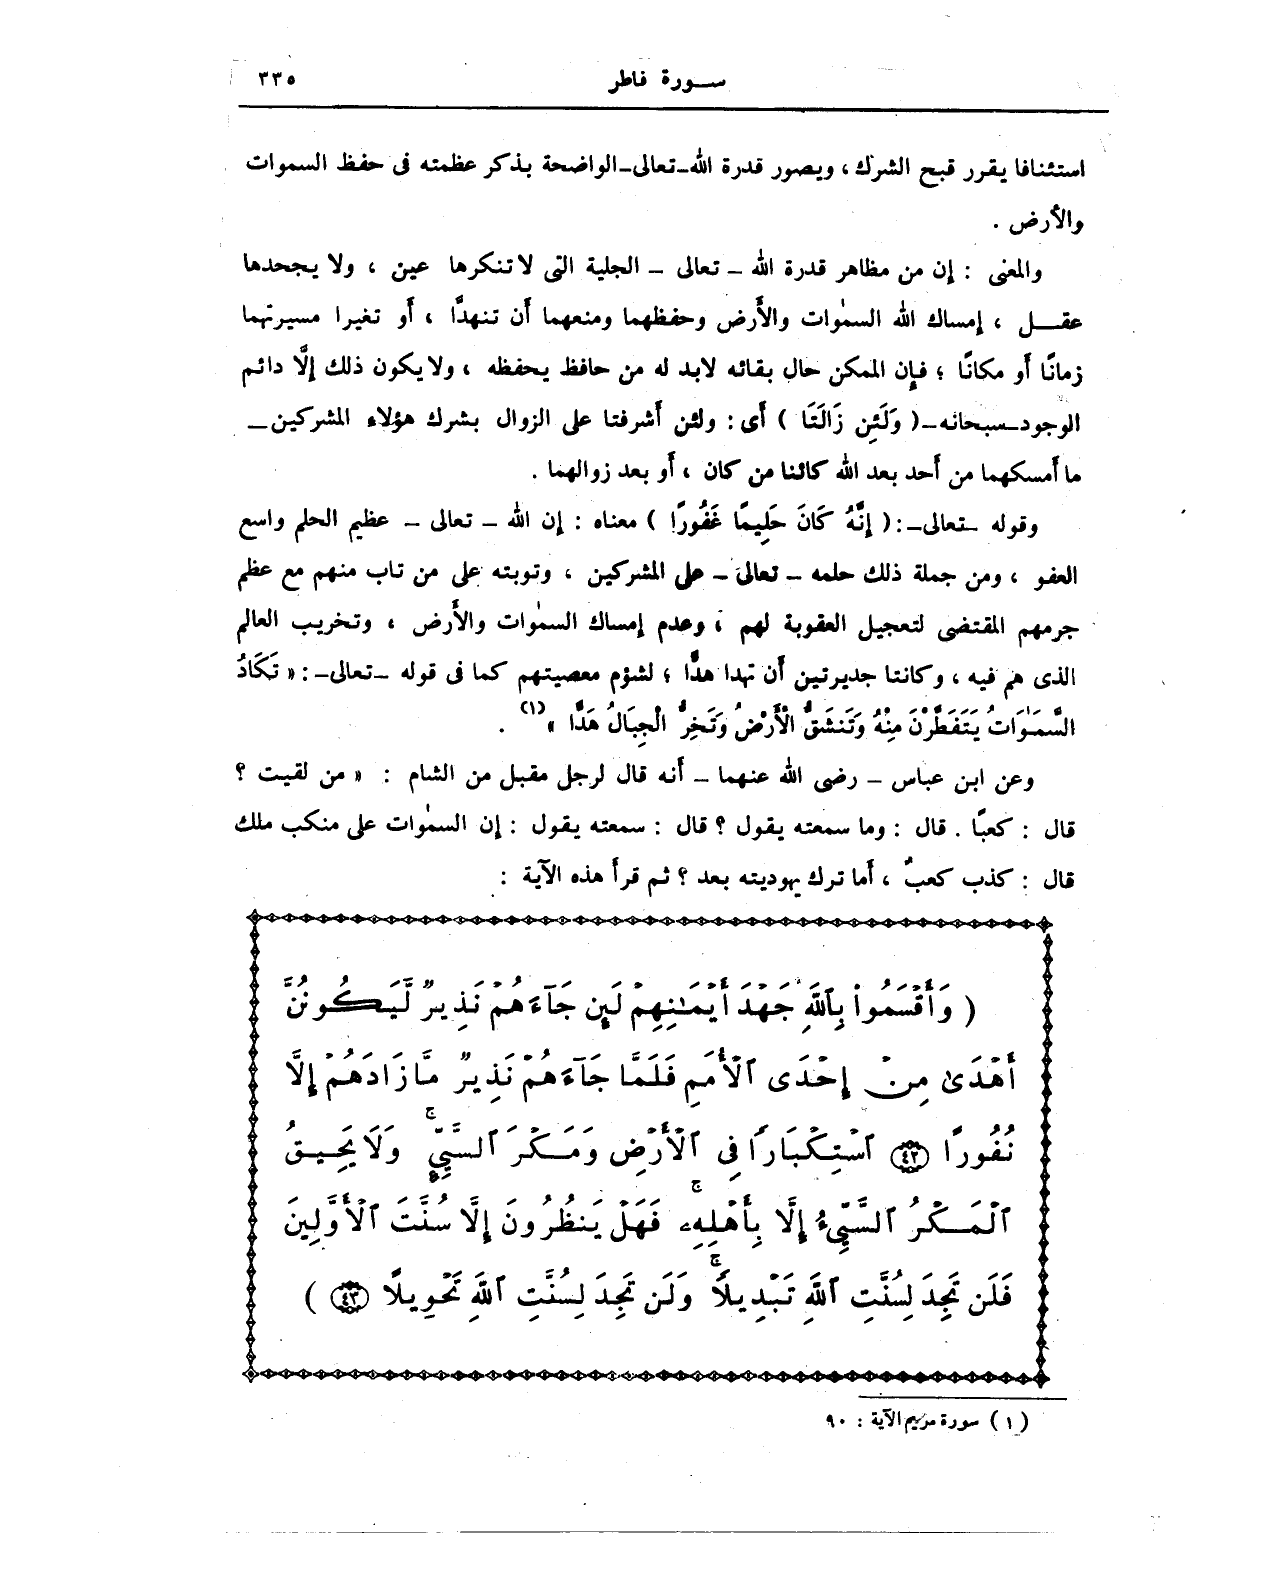 سورة فاطر ٣٣٥
استئنافا يقرر قبح الشرك ، ويصور قدرة الله -تعالى- الواضحة بذكر عظمته فى حفظ السموات
والأرض .
والمعنى : إن من مظاهر قدرة الله - تعالى - الجلية التى لا تنكرها عين ، ولا يجحدها
عقل ، إمساك الله السمٰوات والأَرض وحفظهما ومنعهما أَن تنهدَّا ، أَو تغيرا مسيرتهما
زمانًا أَو مكانًا ؛ فإن الممكن حال بقائه لابد له من حافظ يحفظه ، ولا يكون ذلك إلَّا دائم
الوجود -سبحانه- ( وَلَئِن زَالَتَا ) أَى : ولئن أَشرفتا على الزوال بشرك هؤلاء المشركين -
ما أَمسكهما من أَحد بعد الله كائنا من كان ، أَو بعد زوالهما .
وقوله -تعالى- : ( إِنَّهُ كَانَ حَلِيمًا غَفُورًا ) معناه : إن الله - تعالى - عظيم الحلم واسع
العفو ، ومن جملة ذلك حلمه - تعالى - على المشركين ، وتوبته على من تاب منهم مع عظم
جرمهم المقتضى لتعجيل العقوبة لهم ، وعدم إمساك السمٰوات والأَرض ، وتخريب العالم
الذى هم فيه ، وكانتا جديرتين أَن تهدا هدًّا ؛ لشؤم معصيتهم كما فى قوله -تعالى- : « تَكَادُ
السَّمَٰوَاتُ يَتَفَطَّرْنَ مِنْهُ وَتَنشَقُّ الْأَرْضُ وَتَخِرُّ الْجِبَالُ هَدًّا »(١) .
وعن ابن عباس - رضى الله عنهما - أَنه قال لرجل مقبل من الشام : « من لقيت ؟
قال : كعبًا . قال : وما سمعته يقول ؟ قال : سمعته يقول : إن السمٰوات على منكب ملك
قال : كذب كعبٌ ، أَما ترك يهوديته بعد ؟ ثم قرأَ هذه الآية :
( وَأَقْسَمُوا۟ بِٱللَّهِ جَهْدَ أَيْمَٰنِهِمْ لَئِن جَآءَهُمْ نَذِيرٌ لَّيَكُونُنَّ
أَهْدَىٰ مِنْ إِحْدَى ٱلْأُمَمِ فَلَمَّا جَآءَهُمْ نَذِيرٌ مَّا زَادَهُمْ إِلَّا
نُفُورًا ٤٢ ٱسْتِكْبَارًا فِى ٱلْأَرْضِ وَمَكْرَ ٱلسَّيِّئِ ۚ وَلَا يَحِيقُ
ٱلْمَكْرُ ٱلسَّيِّئُ إِلَّا بِأَهْلِهِۦ ۚ فَهَلْ يَنظُرُونَ إِلَّا سُنَّتَ ٱلْأَوَّلِينَ
فَلَن تَجِدَ لِسُنَّتِ ٱللَّهِ تَبْدِيلًا ۚ وَلَن تَجِدَ لِسُنَّتِ ٱللَّهِ تَحْوِيلًا ٤٣ )
(١) سورة مريم الآية : ٩٠